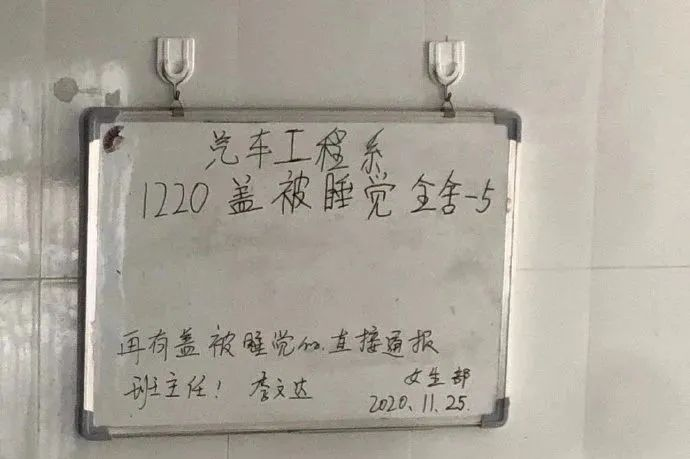 汽车工程系
1220 盖被睡觉 全舍-5
再有盖被睡觉的,直接通报
班主任! 李文达 女生部
2020.11.25.